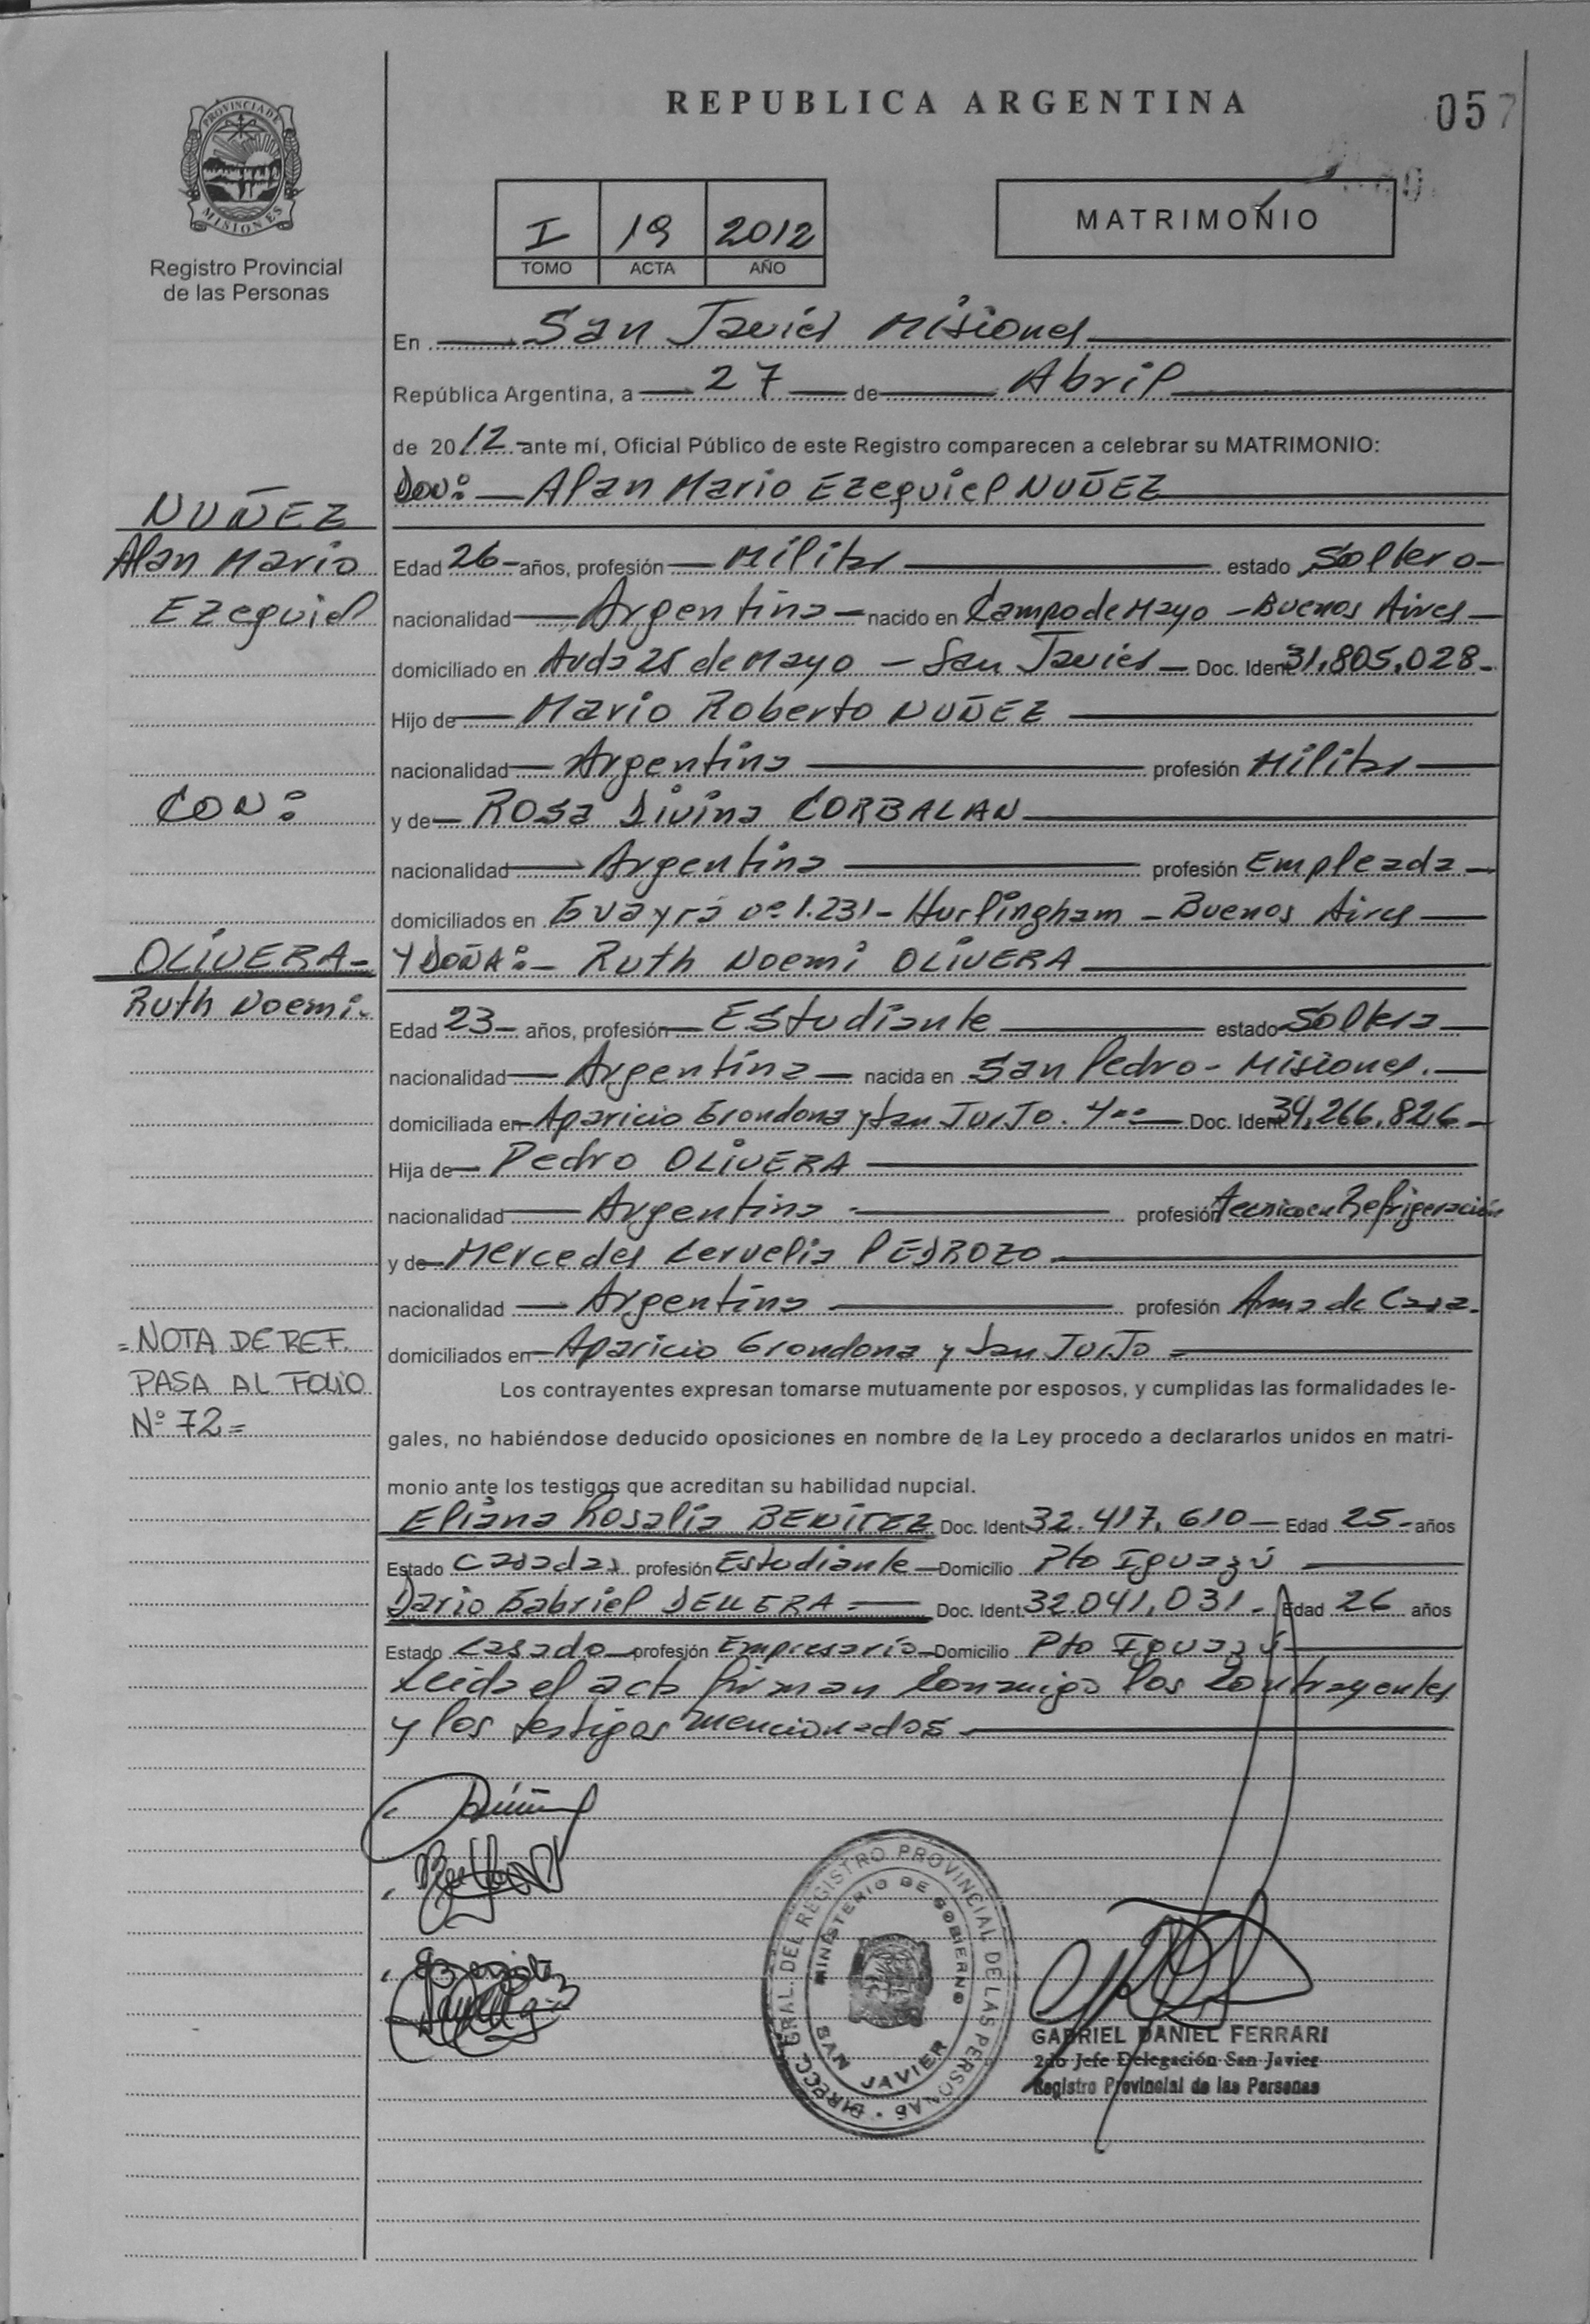 REPUBLICA ARGENTINA
057
PROVINCIA DE
MISIONES
Registro Provincial
de las Personas
I 19 2012
TOMO ACTA AÑO
MATRIMONIO
En San Javier Misiones
República Argentina, a 27 de Abril
de 2012 ante mí, Oficial Público de este Registro comparecen a celebrar su MATRIMONIO:
DON: Alan Mario Ezequiel NUÑEZ
NUÑEZ
Alan Mario
Ezequiel
Edad 26 años, profesión Militar estado Soltero
nacionalidad Argentina nacido en Campo de Mayo - Buenos Aires
domiciliado en Avda 25 de Mayo - San Javier Doc. Ident 31.805.028
Hijo de Mario Roberto NUÑEZ
nacionalidad Argentina profesión Militar
CON:
y de Rosa Divina CORBALAN
nacionalidad Argentina profesión Empleada
domiciliados en Guayrá nº 1.231 - Hurlingham - Buenos Aires
OLIVERA
Ruth Noemi
Y DOÑA: Ruth Noemi OLIVERA
Edad 23 años, profesión Estudiante estado Soltera
nacionalidad Argentina nacida en San Pedro - Misiones.
domiciliada en Aparicio Grondona y San Doc. Ident 34.266.826
Hija de Pedro OLIVERA
nacionalidad Argentina profesión Tecnico en Refrigeración
y de Mercedes PEDROZO
nacionalidad Argentina profesión Ama de Casa
domiciliados en Aparicio Grondona y San
= NOTA DE REF.
PASA AL FOLIO
Nº 72 =
Los contrayentes expresan tomarse mutuamente por esposos, y cumplidas las formalidades le-
gales, no habiéndose deducido oposiciones en nombre de la Ley procedo a declararlos unidos en matri-
monio ante los testigos que acreditan su habilidad nupcial.
Eliana Rosalia BENITEZ Doc. Ident 32.417.610 Edad 25 años
Estado Casada profesión Estudiante Domicilio Pto Iguazú
Dario Gabriel Doc. Ident. 32.041.031 Edad 26 años
Estado Casado profesión Empresario Domicilio Pto Iguazú
Leida el acta firman conmigo los contrayentes
y los testigos mencionados
DIRECC. GRAL. DEL REGISTRO PROVINCIAL DE LAS PERSONAS
MINISTERIO DE GOBIERNO
SAN JAVIER
GABRIEL DANIEL FERRARI
2do Jefe Delegación San Javier
Registro Provincial de las Personas